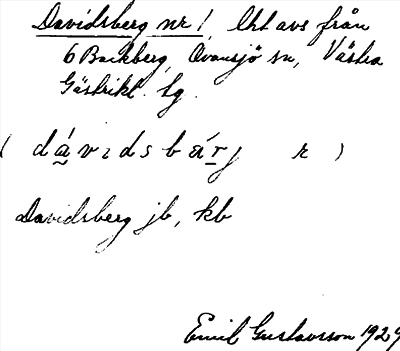 Davidsberg nr 1, Ukl avs från
6 Backberg, Ovansjö sn, Västra
Gästrikl. tg.
( dávɩdsbárj r )
Davidsberg jb, kb
Emil Gustavsson 1929